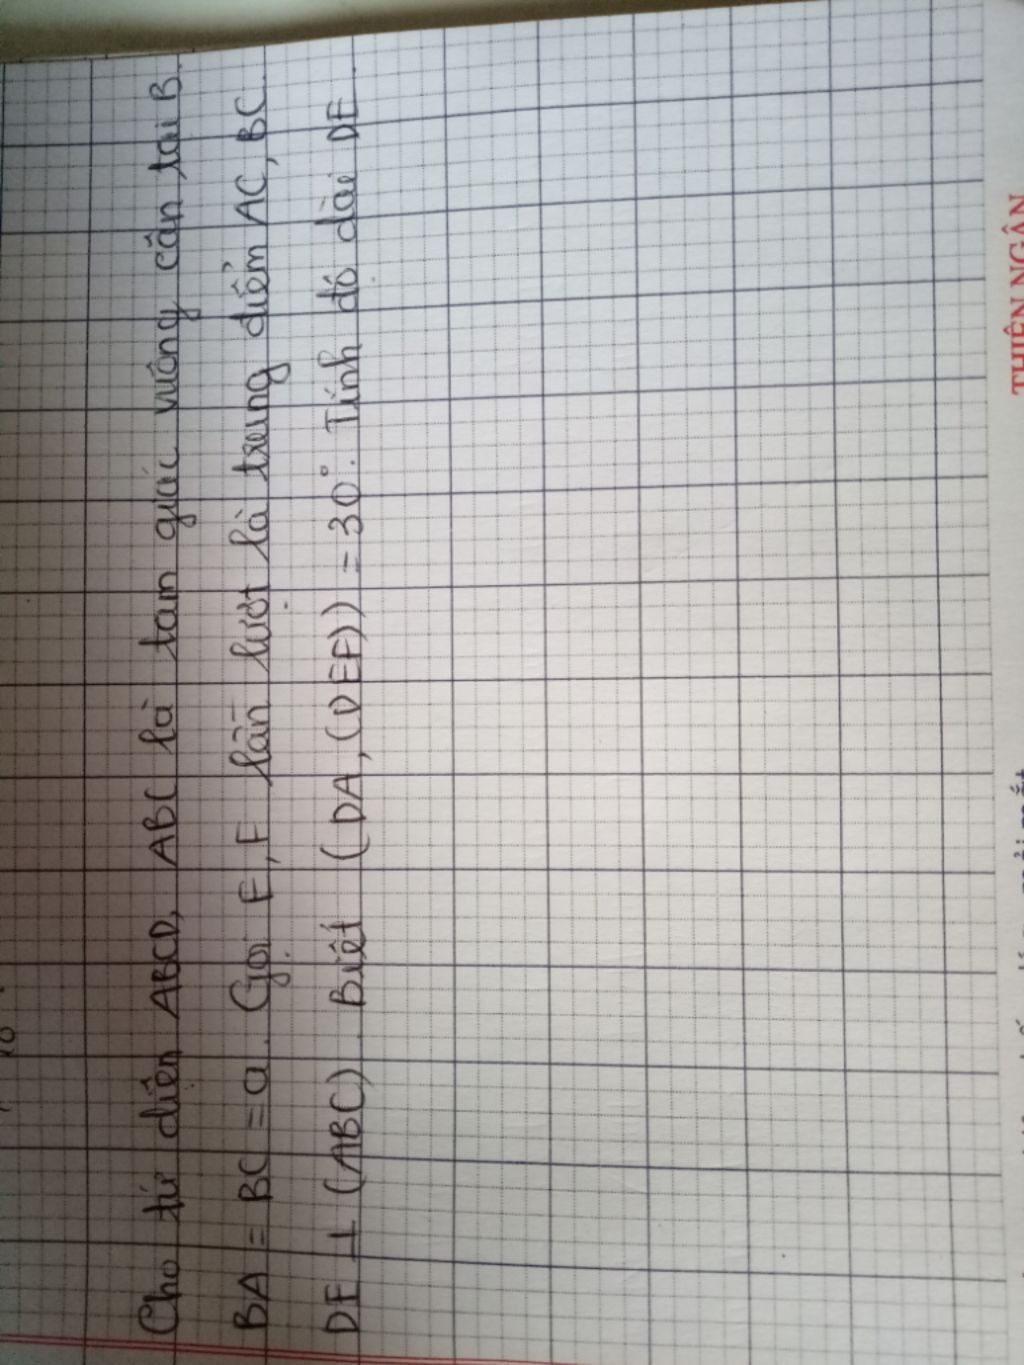 Cho tứ diện ABCD, ABC là tam giác vuông cân tại B.
BA = BC = a. Gọi E, F lần lượt là trung điểm AC, BC.
DE ⊥ (ABC). Biết (DA, (DEF)) = 30°. Tính độ dài DE
THIÊN NGÂN